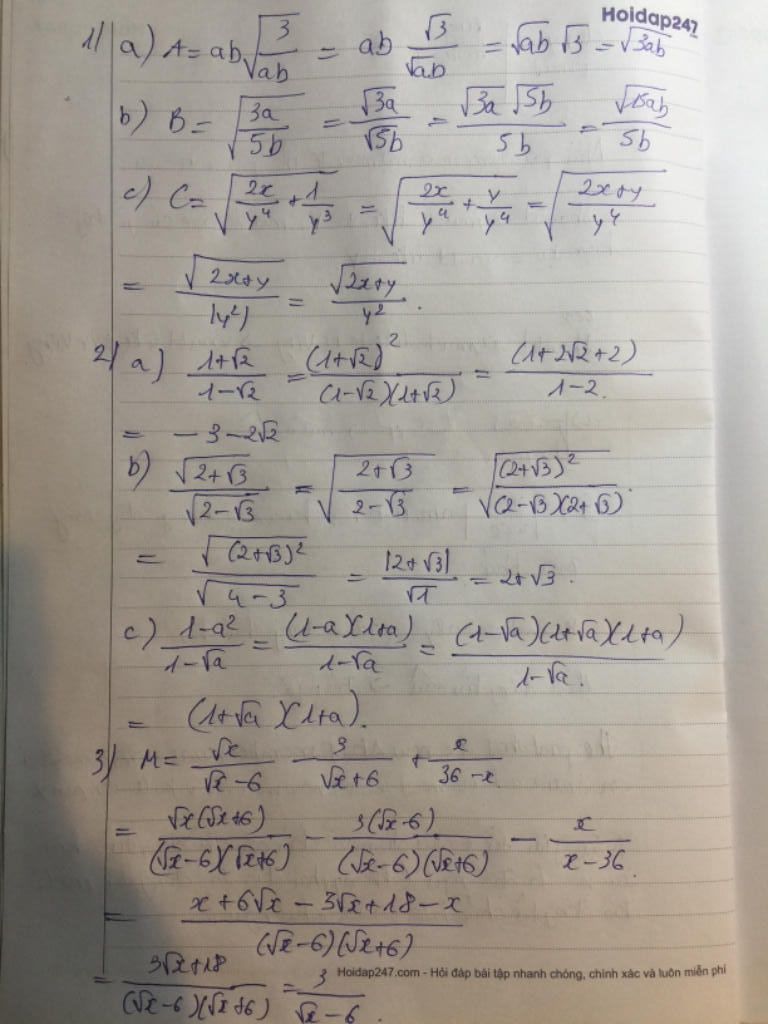 Hoidap247
1) a) A = ab√(3/ab) = ab √3/√ab = √ab √3 = √3ab
b) B = √(3a/5b) = √3a/√5b = √3a √5b/5b = √15ab/5b
c) C = √(2x/y⁴ + 1/y³) = √(2x/y⁴ + y/y⁴) = √((2x+y)/y⁴)
= √(2x+y)/|y²| = √(2x+y)/y².
2) a) (1+√2)/(1-√2) = (1+√2)²/((1-√2)(1+√2)) = (1+2√2+2)/(1-2).
= -3-2√2
b) √(2+√3)/√(2-√3) = √((2+√3)/(2-√3)) = √((2+√3)²/((2-√3)(2+√3))).
= √((2+√3)²)/√(4-3) = |2+√3|/√1 = 2+√3.
c) (1-a²)/(1-√a) = (1-a)(1+a)/(1-√a) = (1-√a)(1+√a)(1+a)/(1-√a).
= (1+√a)(1+a).
3) M = √x/(√x-6) 3/(√x+6) + x/(36-x)
= √x(√x+6)/((√x-6)(√x+6)) - 3(√x-6)/((√x-6)(√x+6)) - x/(x-36).
= (x+6√x-3√x+18-x)/((√x-6)(√x+6))
= (3√x+18)/((√x-6)(√x+6)) = 3/(√x-6).
Hoidap247.com - Hỏi đáp bài tập nhanh chóng, chính xác và luôn miễn phí